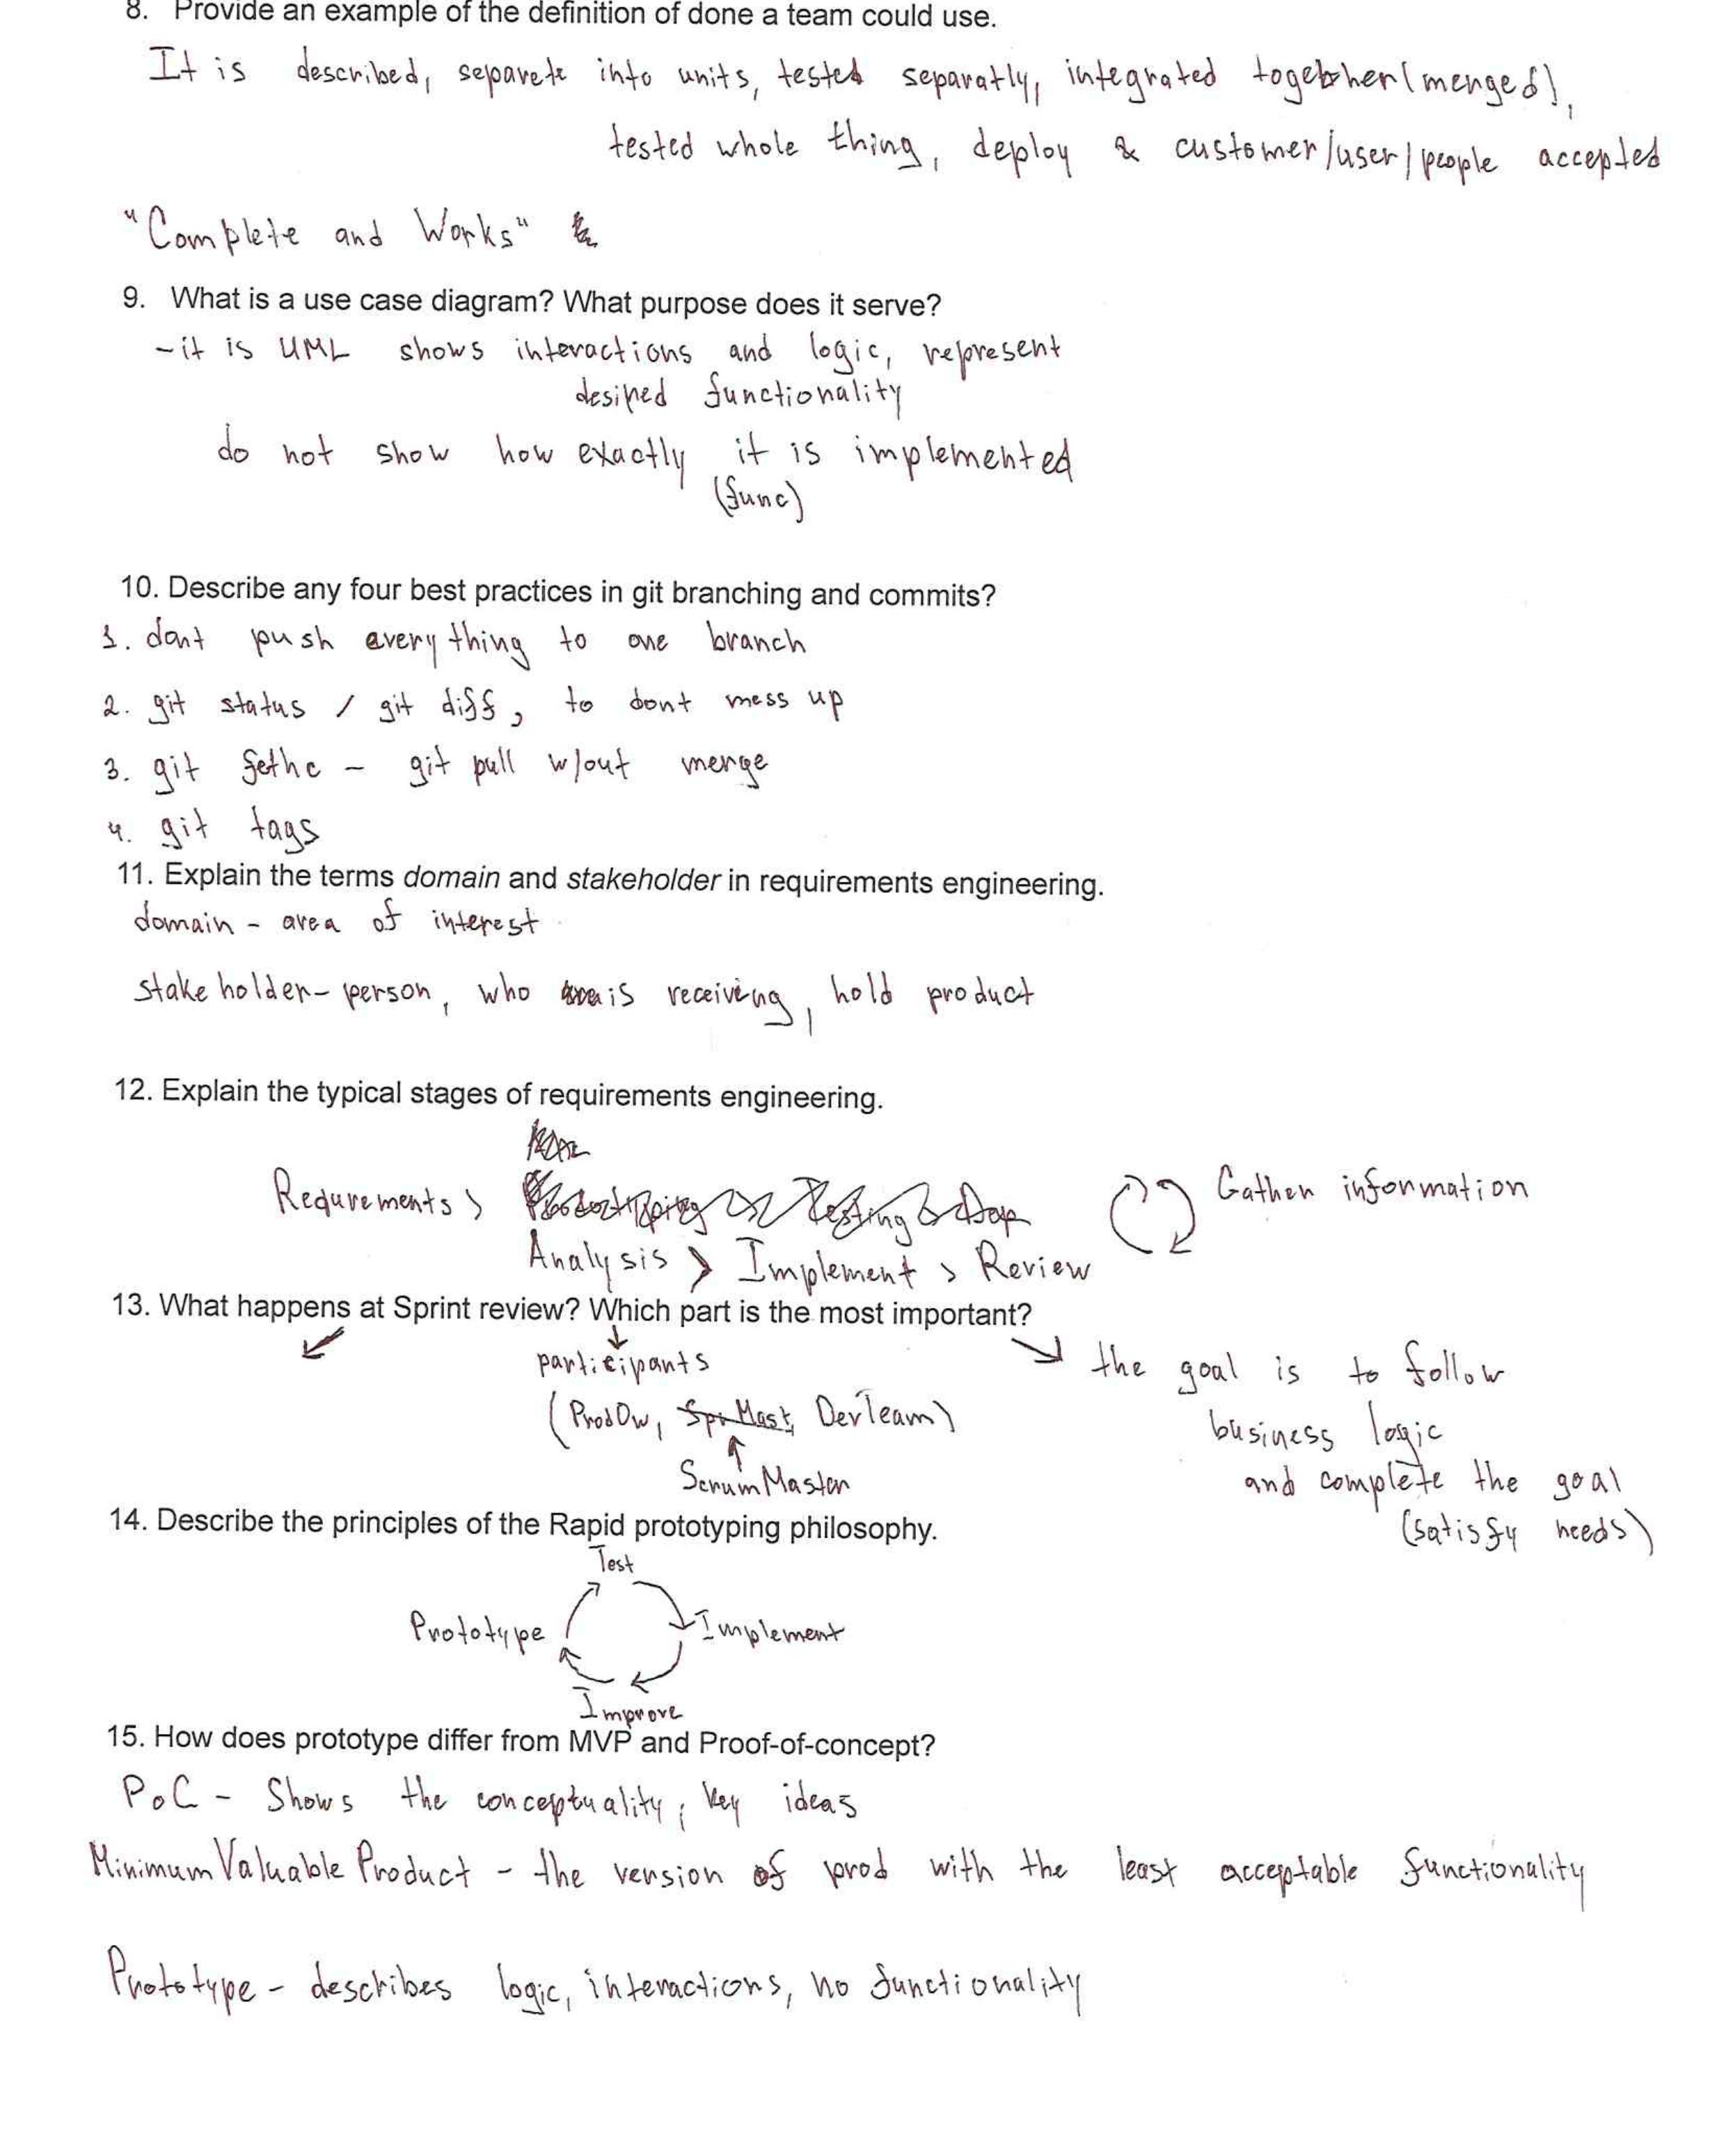 8. Provide an example of the definition of done a team could use.
It is described, separete into units, tested separatly, integrated together (merged),
tested whole thing, deploy & customer/user/people accepted
"Complete and Works"
9. What is a use case diagram? What purpose does it serve?
- it is UML shows interactions and logic, represent
desired functionality
do not show how exactly it is implemented
(func)
10. Describe any four best practices in git branching and commits?
1. dont push everything to one branch
2. git status / git diff, to dont mess up
3. git fethc - git pull w/out merge
4. git tags
11. Explain the terms domain and stakeholder in requirements engineering.
domain - area of interest
stakeholder - person, who is receiving, hold product
12. Explain the typical stages of requirements engineering.
Requrements > Gather information
Analysis > Implement > Review
13. What happens at Sprint review? Which part is the most important?
participants the goal is to follow
(ProdOw, Spr Mast, DevTeam) business logic
ScrumMaster and complete the goal
(satisfy needs)
14. Describe the principles of the Rapid prototyping philosophy.
Test
Prototype Implement
Improve
15. How does prototype differ from MVP and Proof-of-concept?
PoC - Shows the conceptuality, key ideas
Minimum Valuable Product - the version of prod with the least acceptable functionality
Prototype - describes logic, interactions, no functionality